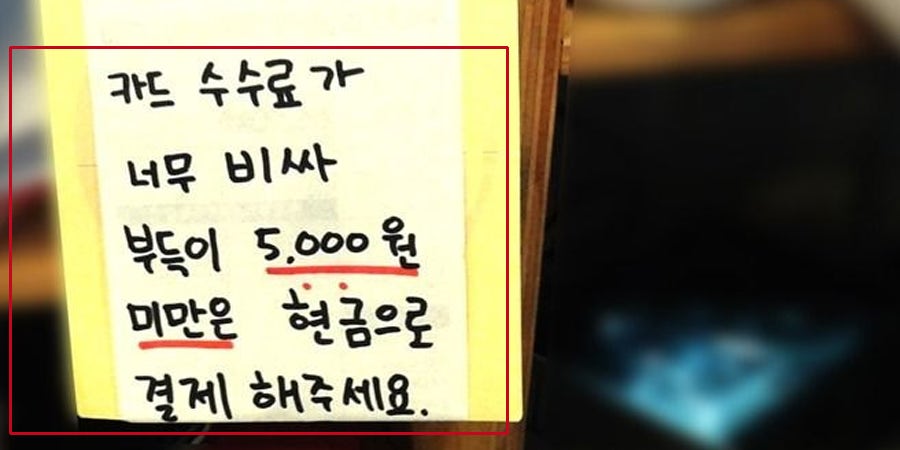 카드 수수료가
너무 비싸
부득이 5.000원
미만은 현금으로
결제 해주세요.